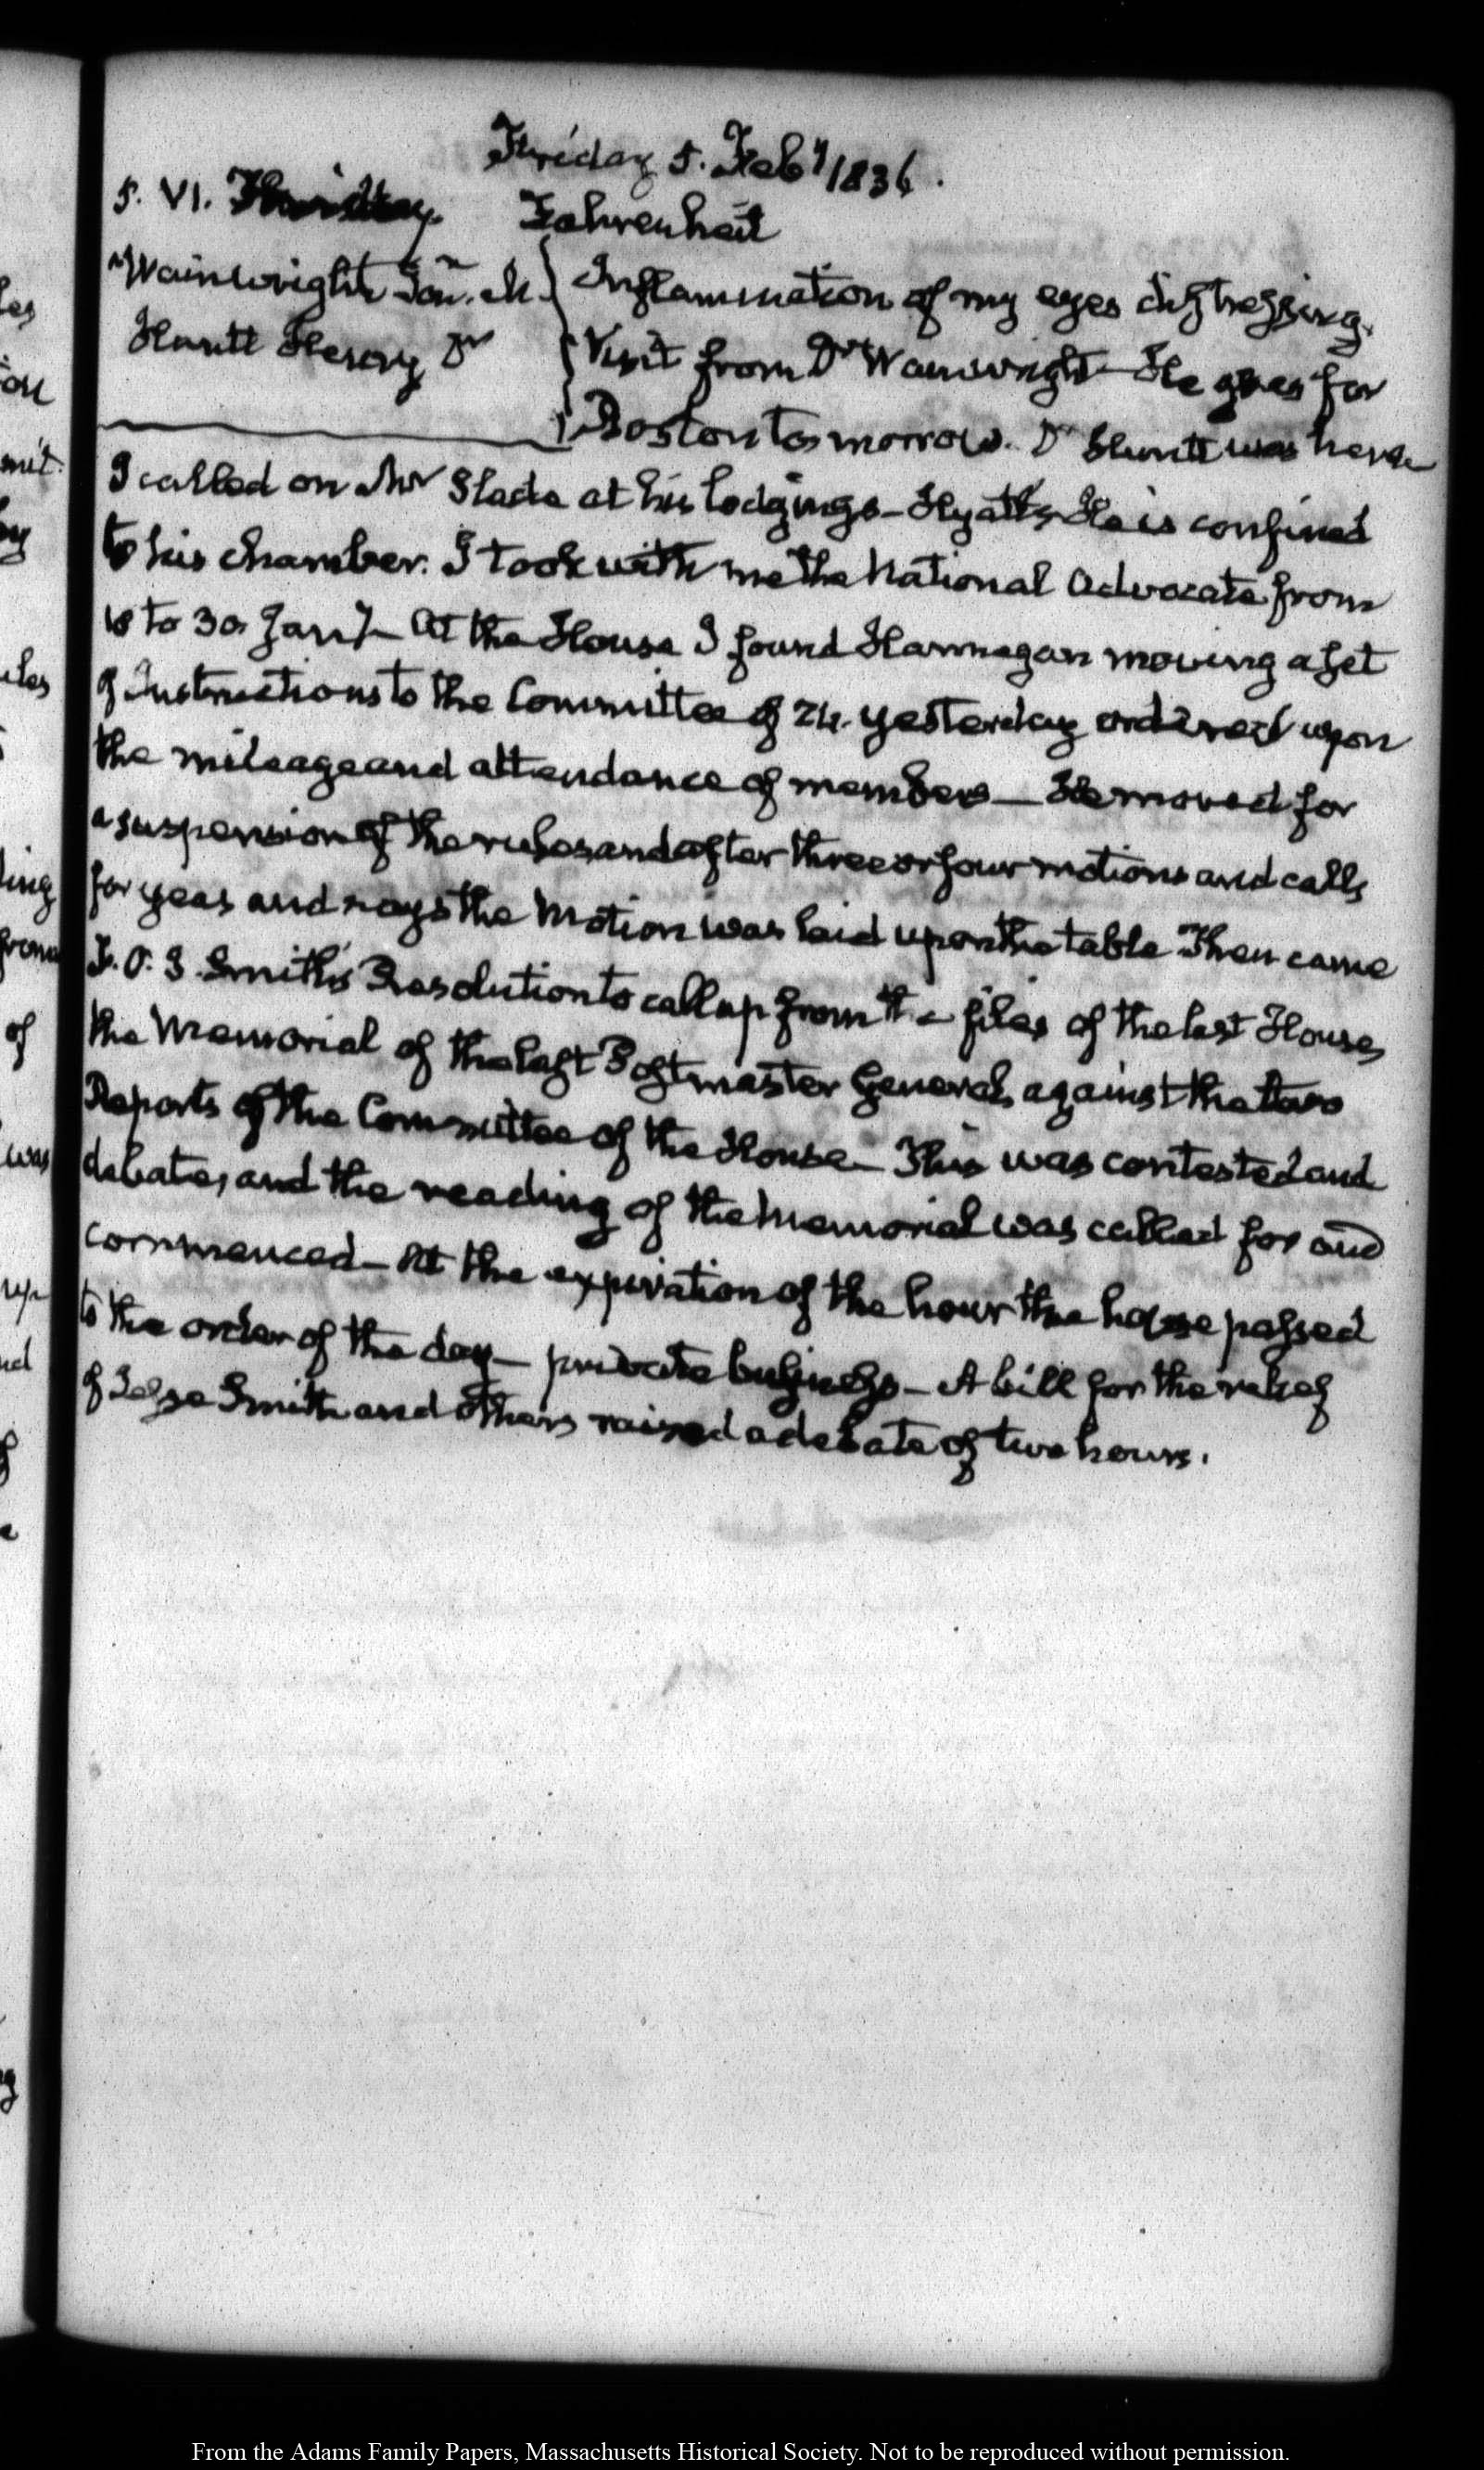 Friday 5. Feby 1836.
5. VI. Thursday. Fahrenheit
Wainwright Jon. M. Inflammation of my eyes distressing.
Huntt Henry Dr Visit from Dr Wainwright He goes for
Boston to morrow. Dr Huntt was here
I called on Mr Slade at his lodgings – Hyatt's He is confined
to his chamber. I took with me the National Advocate from
to 30 Jany – At the House I found Hannegan moving a set
of Instructions to the Committee of 24. yesterday ordered upon
the mileage and attendance of members – He moved for
a suspension of the rules and after three or four motions and calls
for yeas and nays the Motion was laid upon the table Then came
F. O. J. Smith's Resolution to call up from the files of the last House,
the Memorial of the last Postmaster General, against the two
Reports of the Committee of the House – This was contested and
debate, and the reading of the Memorial was called for and
commenced – At the expiration of the hour the house passed
to the order of the day – private business – A bill for the relief
of Smith and others raised a debate of two hours.
les
mit.
by
iles
ling
from
of
was
up
From the Adams Family Papers, Massachusetts Historical Society. Not to be reproduced without permission.